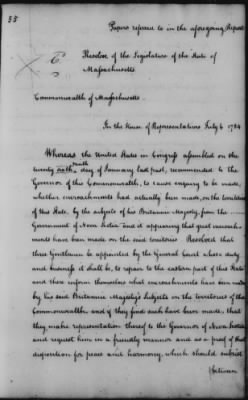 35
Papers referred to in the aforegoing Report
C.
Resolve of the Legislature of the State of
Massachusetts
Commonwealth of Massachusetts.
In the House of Representatives July 6 1784
Whereas the United States in Congress assembled on the
twenty sixth day of January last past, recommended to the
Governor of this Commonwealth, to cause enquiry to be made,
whether encroachments had actually been made, on the territories
of this State, by the subjects of his Britannic Majesty, from the
Government of Nova Scotia and it appearing that great encroach-
ments have been made on the said territories Resolved that
three Gentlemen be appointed by the General Court whose duty
and business it shall be, to repair to the eastern part of this State
and then inform themselves what encroachments have been made
by his said Britannic Majesty's Subjects on the territories of this
Commonwealth and if they find such have been made, that
they make representation thereof to the Governor of Nova Scotia
and request him in a friendly manner and as a proof of that
disposition for peace and harmony, which should subsist
between